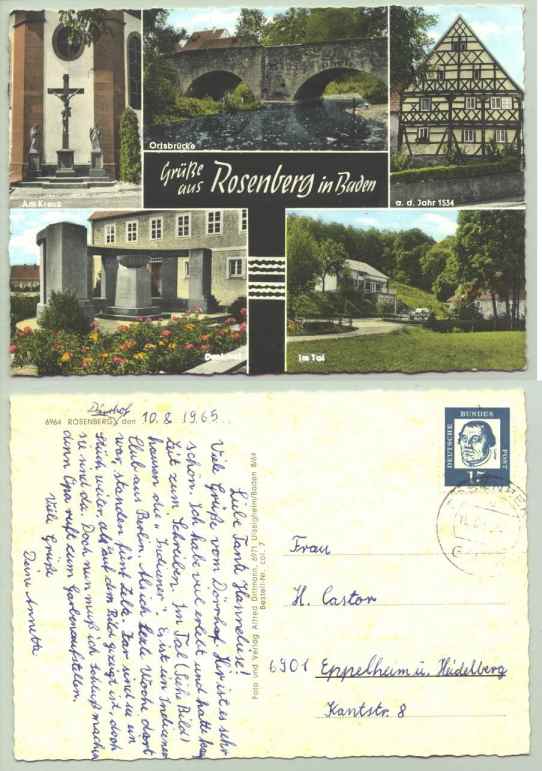 Am Kreuz
Ortsbrücke
a. d. Jahr 1534
Grüße
aus Rosenberg in Baden
Denkmal
Im Tal
Dörrhof
6964 ROSENBERG, den 10.8 1965.
Liebe Tante Hannelise!
Viele Grüße vom Dörrhof. Hier ist es sehr
schön. Ich habe viel erlebt und hatte kaum
Zeit zum Schreiben. Im Tal (siehe Bild)
hausen die "Indianer". Es ist ein Indianer
Club aus Berlin. Als ich letzte Woche dort
war, standen fünf Zelte. Zwar sind es ein
Stück weiter als auf dem Bild gezeigt ist, doch
sie sind da. Doch nun muß ich Schluß machen
denn Opa ruft zum Garbenaufstellen.
Viele Grüße
Deine Annette
Foto und Verlag Alfred Ortmann, 6971 Gissigheim/Baden 8/64
Bestell-Nr. col.
DEUTSCHE BUNDES POST
15
Frau
H. Castor
6901 Eppelheim ü. Heidelberg
Kantstr. 8